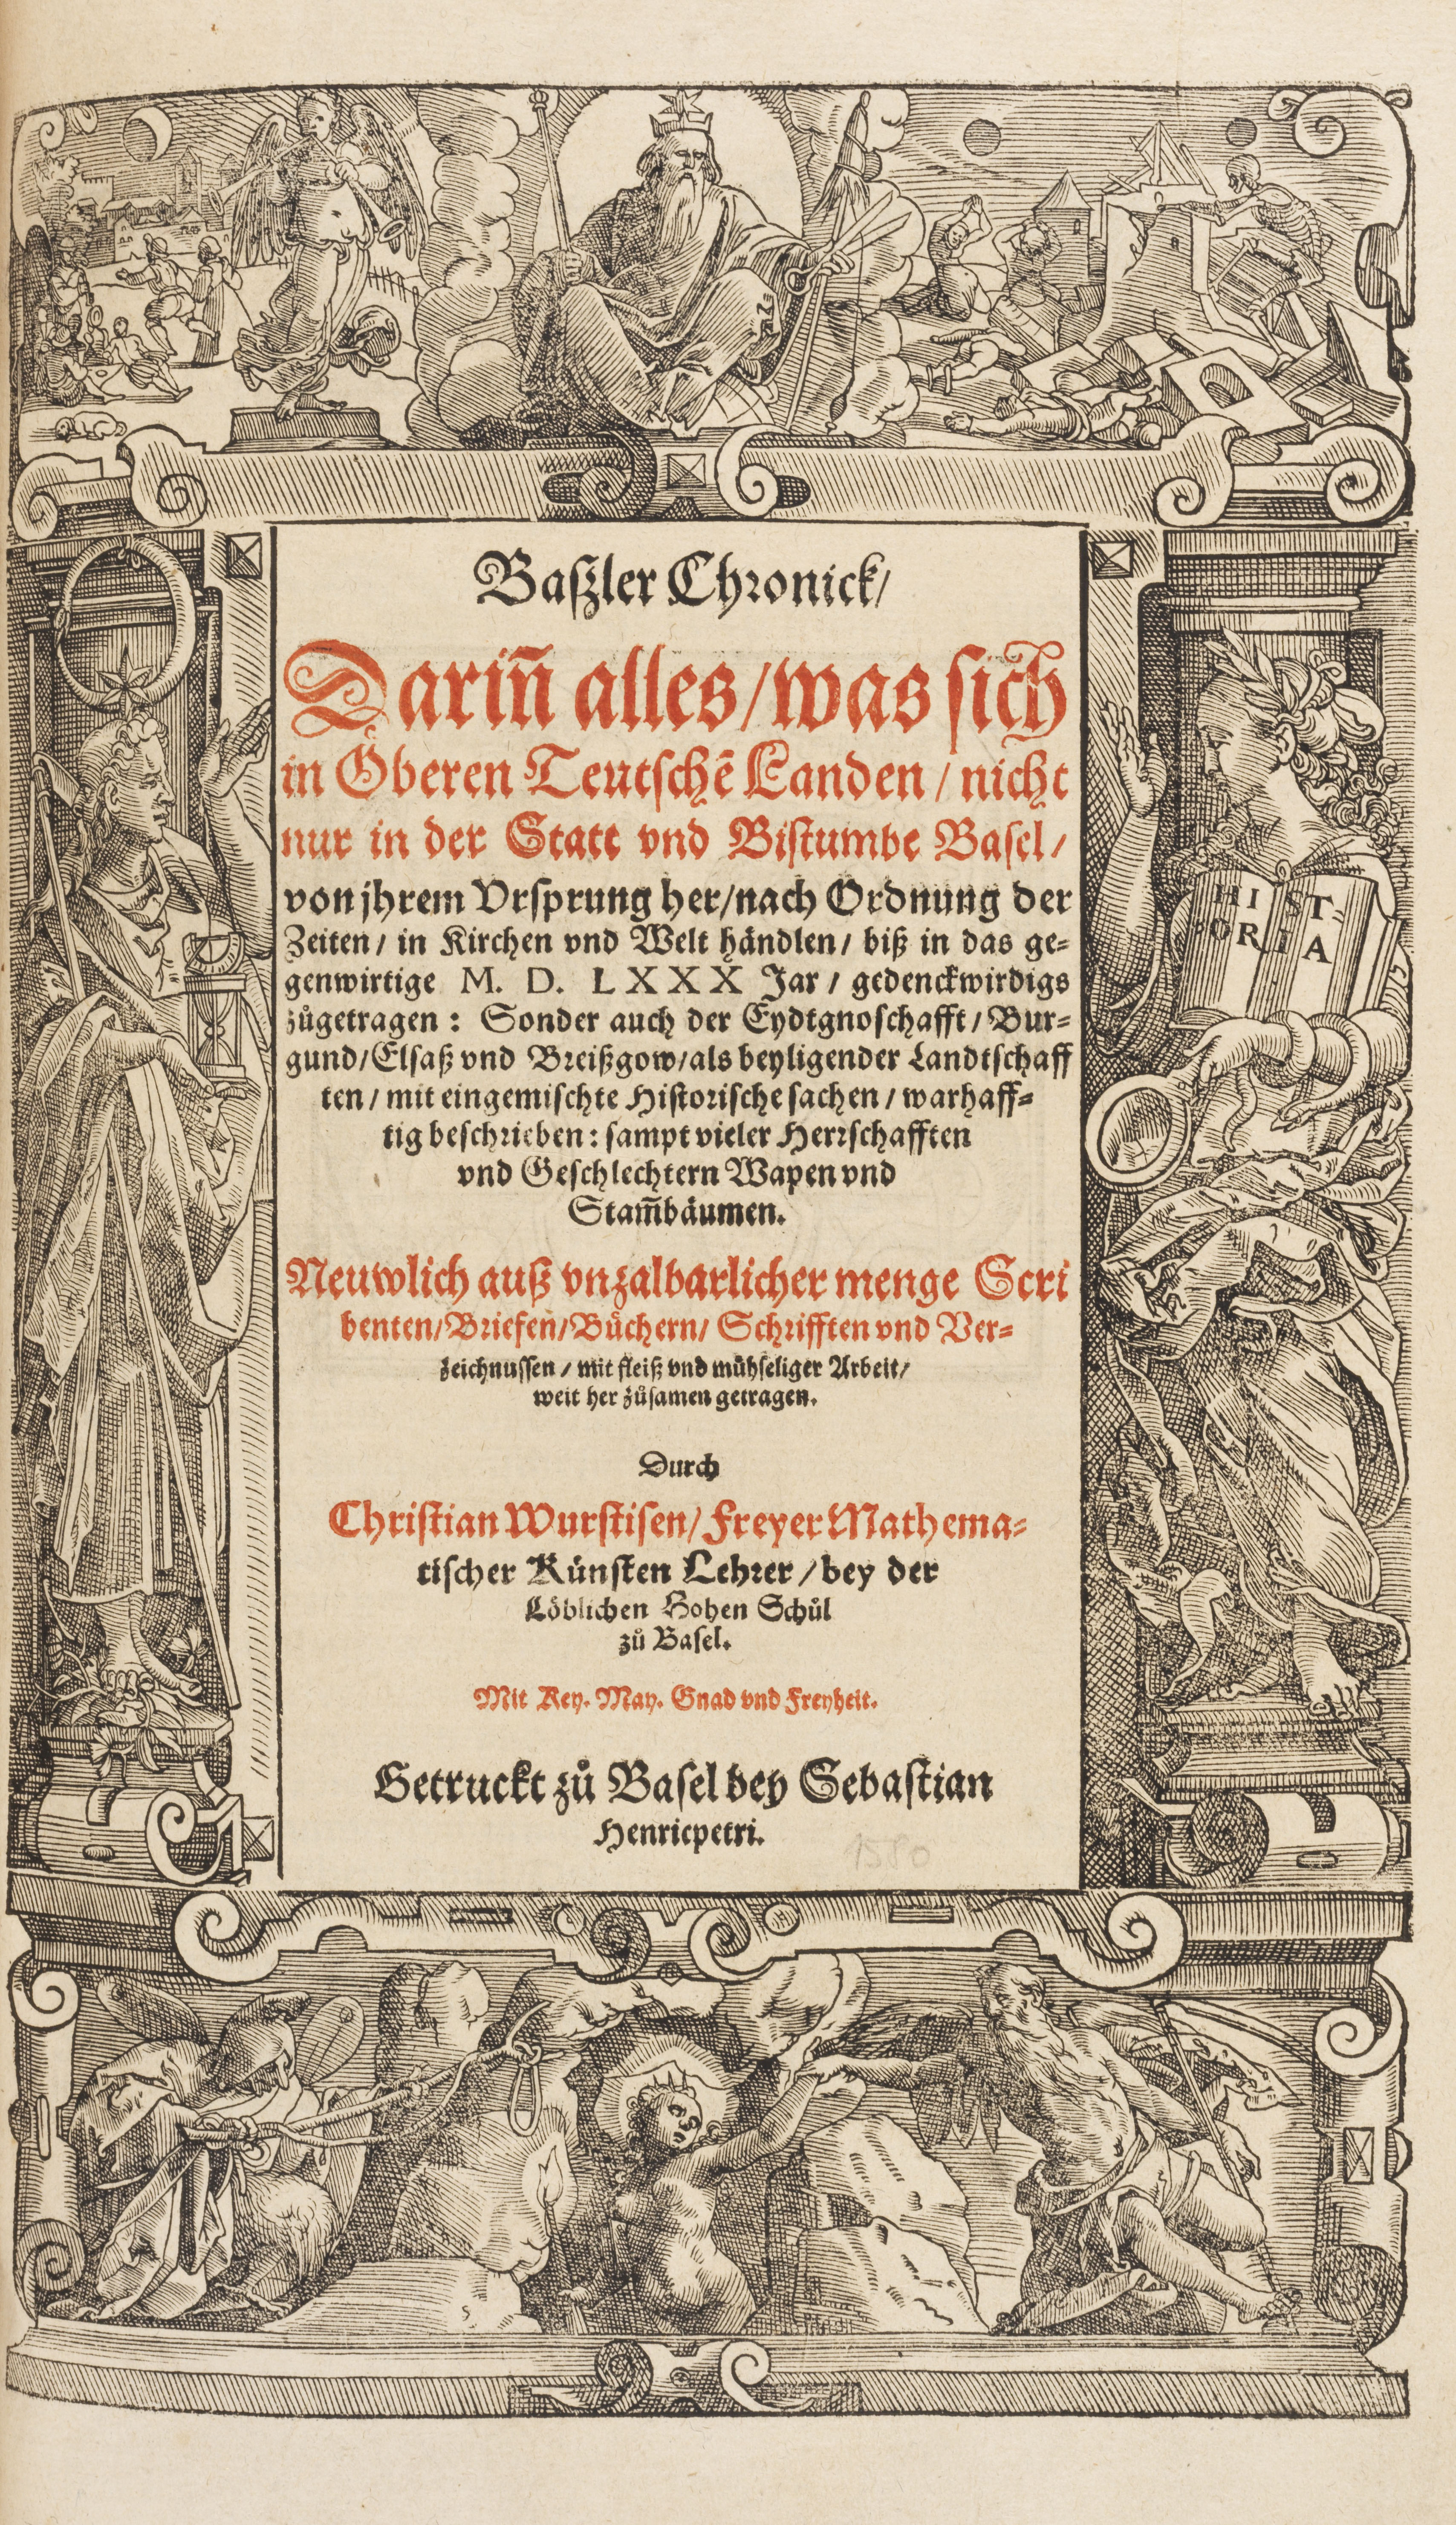 Baſzler Chronick/
Dariñ alles/was ſich
in Oͤberen Teutſchẽ Landen/nicht
nur in der Statt vnd Biſtumbe Baſel/
von jhrem Vrſprung her/nach Ordnung der
Zeiten/ in Kirchen vnd Welt haͤndlen/ biß in das ge⸗
genwirtige M. D. LXXX Jar/ gedenckwirdigs
zůgetragen: Sonder auch der Eydtgnoſchafft/Bur⸗
gund/Elſaß vnd Breißgow/als beyligender Landtſchaff
ten/mit eingemiſchte Hiſtoriſche ſachen/warhaff⸗
tig beſchrieben: ſampt vieler Herrſchafften
vnd Geſchlechtern Wapen vnd
Stam̃baͤumen.
HI ST⸗
ORI A
Neuwlich auß vnzalbarlicher menge Scri
benten/Briefen/Buͤchern/ Schrifften vnd Ver⸗
zeichnuſſen/mit fleiß vnd muͤhſeliger Arbeit/
weit her zůſamen getragen.
Durch
Chriſtian Wurſtiſen/Freyer Mathema⸗
tiſcher Kuͤnſten Lehrer/bey der
Loͤblichen Hohen Schůl
zů Baſel.
Mit Key. May. Gnad vnd Freyheit.
Getruckt zů Baſel bey Sebaſtian
Henricpetri.
1580